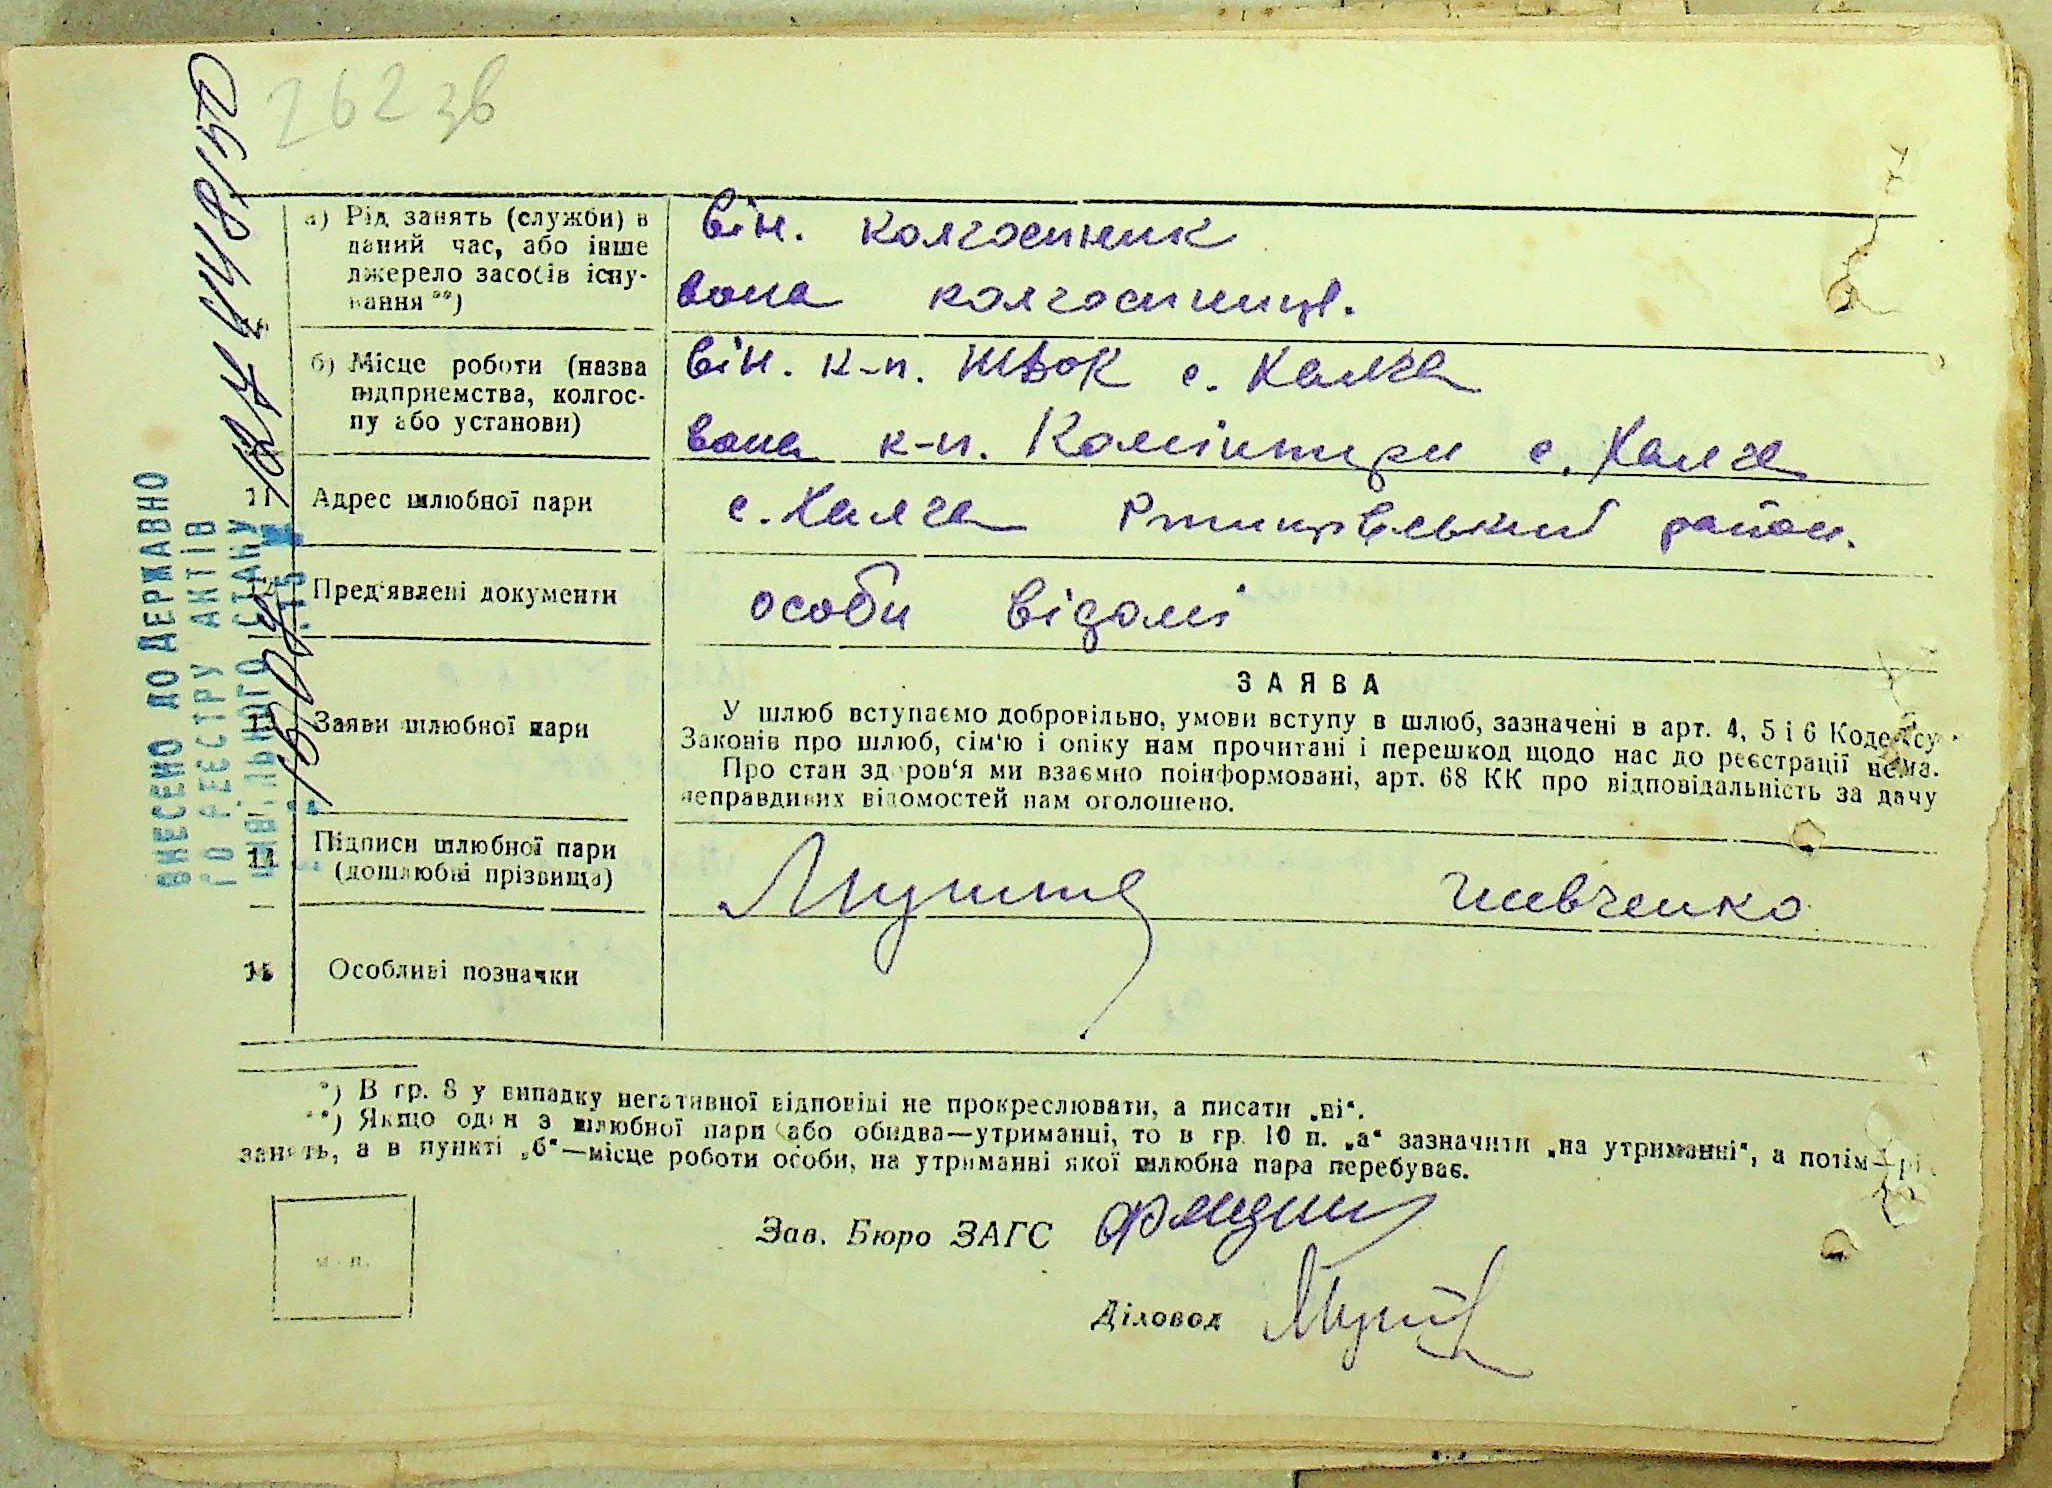 262 зв
а) Рід занять (служби) в
даний час, або інше
джерело засобів існу-
вання **)
він. колгоспник
вона колгоспниця.
б) Місце роботи (назва
підприємства, колгос-
пу або установи)
він. к-п. ІІІВОК с. Халча
вона к-п. Комінтерн с. Халча
11 Адрес шлюбної пари
с. Халча Ржищівський район.
12 Пред‘явлені документи
особи відомі
13 Заяви шлюбної пари
ЗАЯВА
У шлюб вступаємо добровільно, умови вступу в шлюб, зазначені в арт. 4, 5 і 6 Кодексу
Законів про шлюб, сім‘ю і опіку нам прочитані і перешкод щодо нас до реєстрації нема.
Про стан здоров‘я ми взаємно поінформовані, арт. 68 КК про відповідальність за дачу
неправдивих відомостей нам оголошено.
14 Підписи шлюбної пари
(дошлюбні прізвища)
Шевченко
15 Особливі позначки
ВНЕСЕНО ДО ДЕРЖАВНО
ГО РЕЄСТРУ АКТІВ
ЦИВІЛЬНОГО СТАНУ
*) В гр. 8 у випадку негативної відповіді не прокреслювати, а писати „ні“.
**) Якщо один з шлюбної пари або обидва—утриманці, то в гр. 10 п. „а“ зазначити „на утриманні“, а потім—рід
занять, а в пункті „б“—місце роботи особи, на утриманні якої шлюбна пара перебуває.
м. п.
Зав. Бюро ЗАГС
Діловод